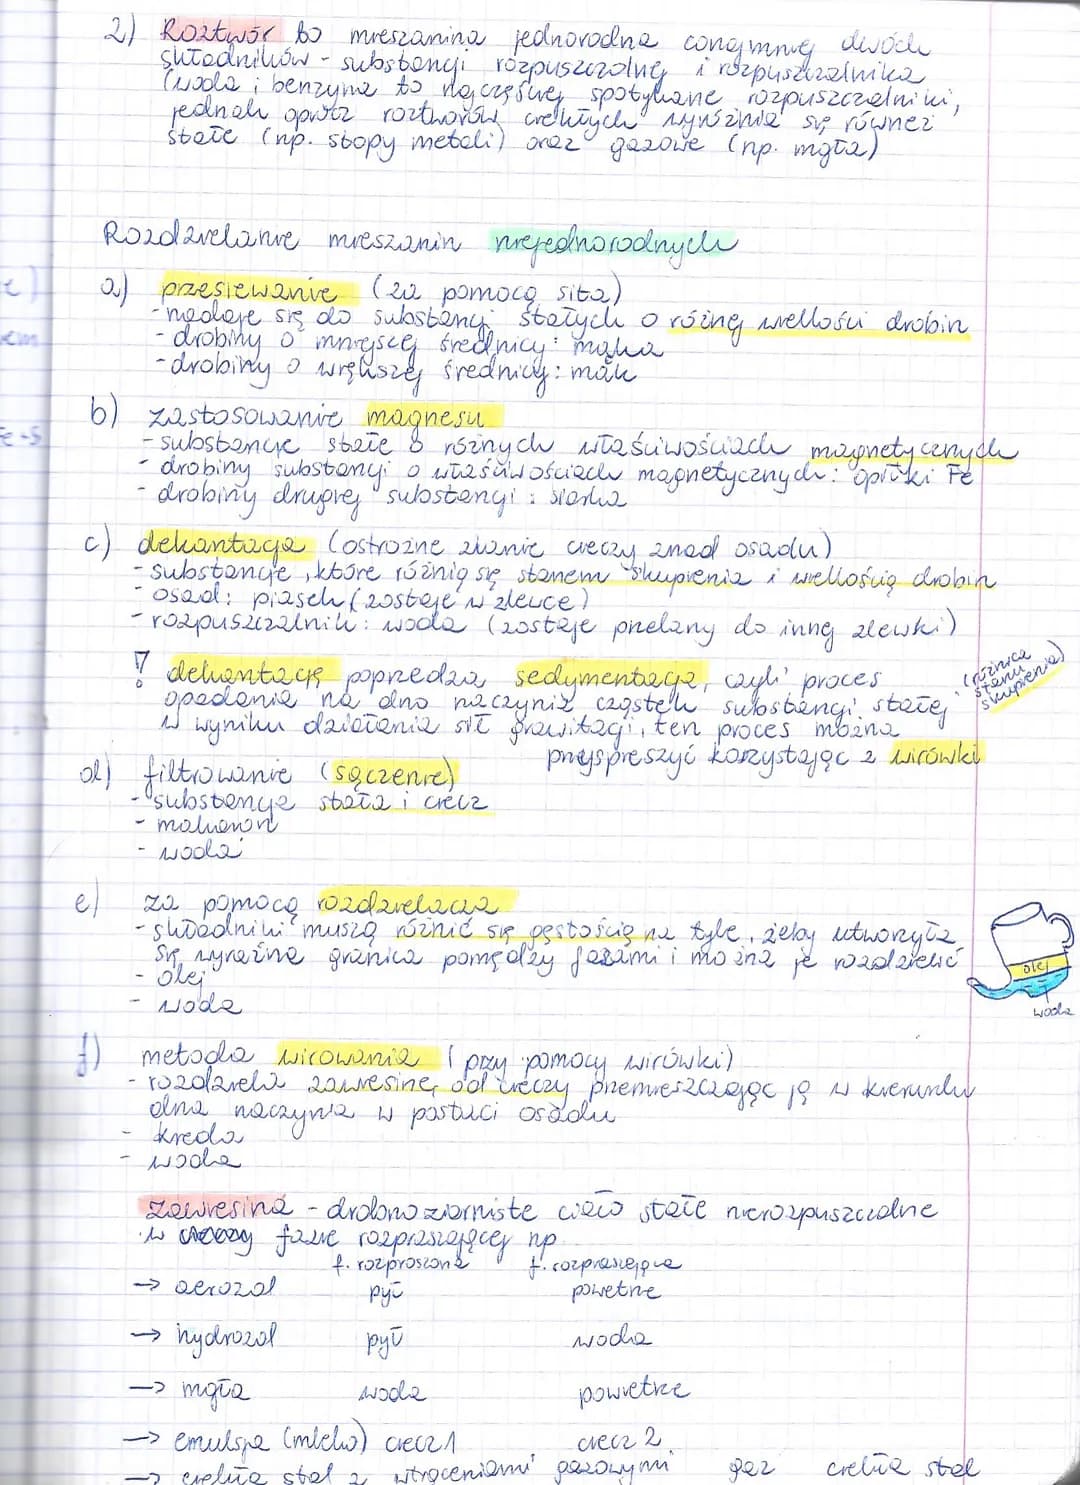 2) Roztwór to mieszanina jednorodna conajmniej dwóch
składników - substancji rozpuszczalnej i rozpuszczalnika
(woda i benzyna to najczęściej spotykane rozpuszczalniki,
jednak oprócz roztworów ciekłych wyróżnia się również
stałe (np. stopy metali) oraz gazowe (np. mgła)
Rozdzielanie mieszanin niejednorodnych
a) przesiewanie (za pomocą sita)
- nadaje się do substancji stałych o różnej wielkości drobin
- drobiny o mniejszej średnicy: mąka
- drobiny o większej średnicy: mak
b) zastosowanie magnesu
- substancje stałe o różnych właściwościach magnetycznych
- drobiny substancji o właściwościach magnetycznych: opiłki Fe
- drobiny drugiej substancji: siarka
c) dekantacja (ostrożne zlanie cieczy znad osadu)
- substancje, które różnią się stanem skupienia i wielkością drobin
- osad: piasek (zostaje w zlewce)
- rozpuszczalnik: woda (zostaje przelany do innej zlewki)
! dekantację poprzedza sedymentacja, czyli proces
(różnica
stanu
skupienia)
opadania na dno naczynia cząstek substancji stałej
w wyniku działania sił grawitacji, ten proces można
przyspieszyć korzystając z wirówki
d) filtrowanie (sączenie)
- substancja stała i ciecz
- makaron
- woda
e) za pomocą rozdzielacza
- składniki muszą różnić się gęstością na tyle, żeby utworzyła
się wyraźna granica pomiędzy fazami i można je rozdzielić
- olej
- woda
olej
woda
f) metoda wirowania (przy pomocy wirówki)
- rozdziela zawiesinę od cieczy przemieszczając ją w kierunku
dna naczynia w postaci osadu
- kreda
- woda
zawiesina - drobnoziarniste ciało stałe nierozpuszczalne
w fazie rozpraszającej np.
f. rozproszona f. rozpraszająca
→ aerozol pył powietrze
→ hydrozol pył woda
→ mgła woda powietrze
→ emulsja (mleko) ciecz 1 ciecz 2
→ ciekła stal z wtrąceniami gazowymi gaz ciekła stal